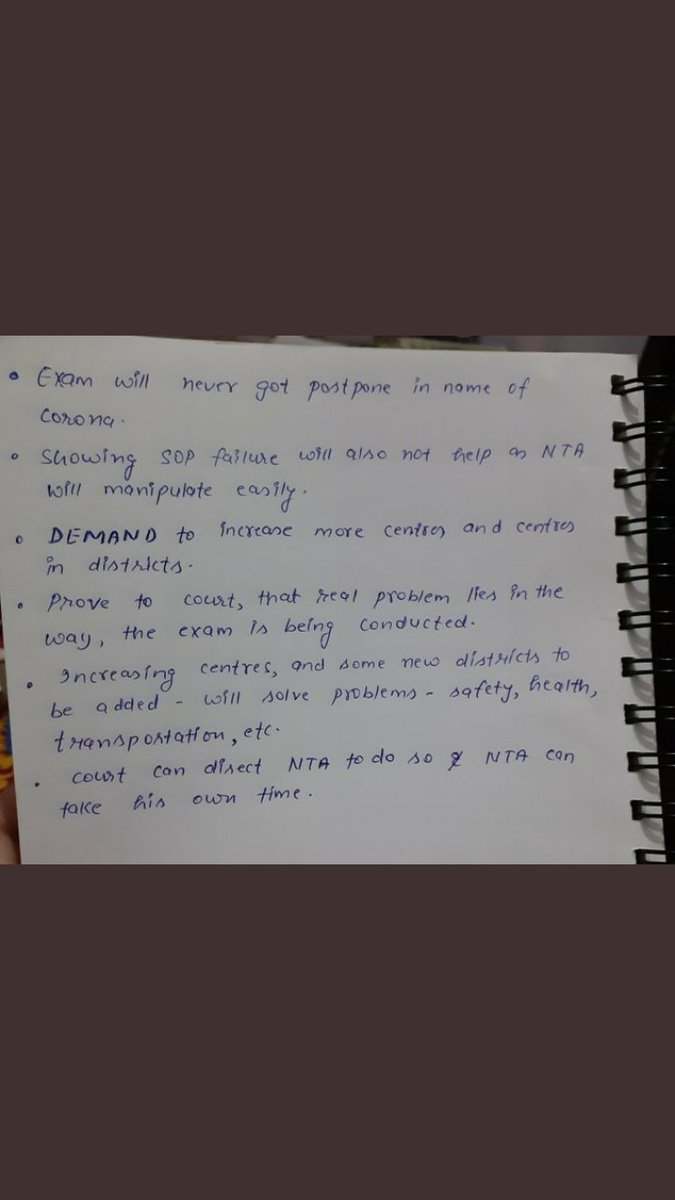 • Exam will never got postpone in name of
corona.
• Showing SOP failure will also not help as NTA
will manipulate easily.
• DEMAND to increase more centres and centres
in districts.
• Prove to court, that real problem lies in the
way, the exam is being conducted.
• Increasing centres, and some new districts to
be added - will solve problems - safety, health,
transportation, etc.
• court can direct NTA to do so & NTA can
take his own time.